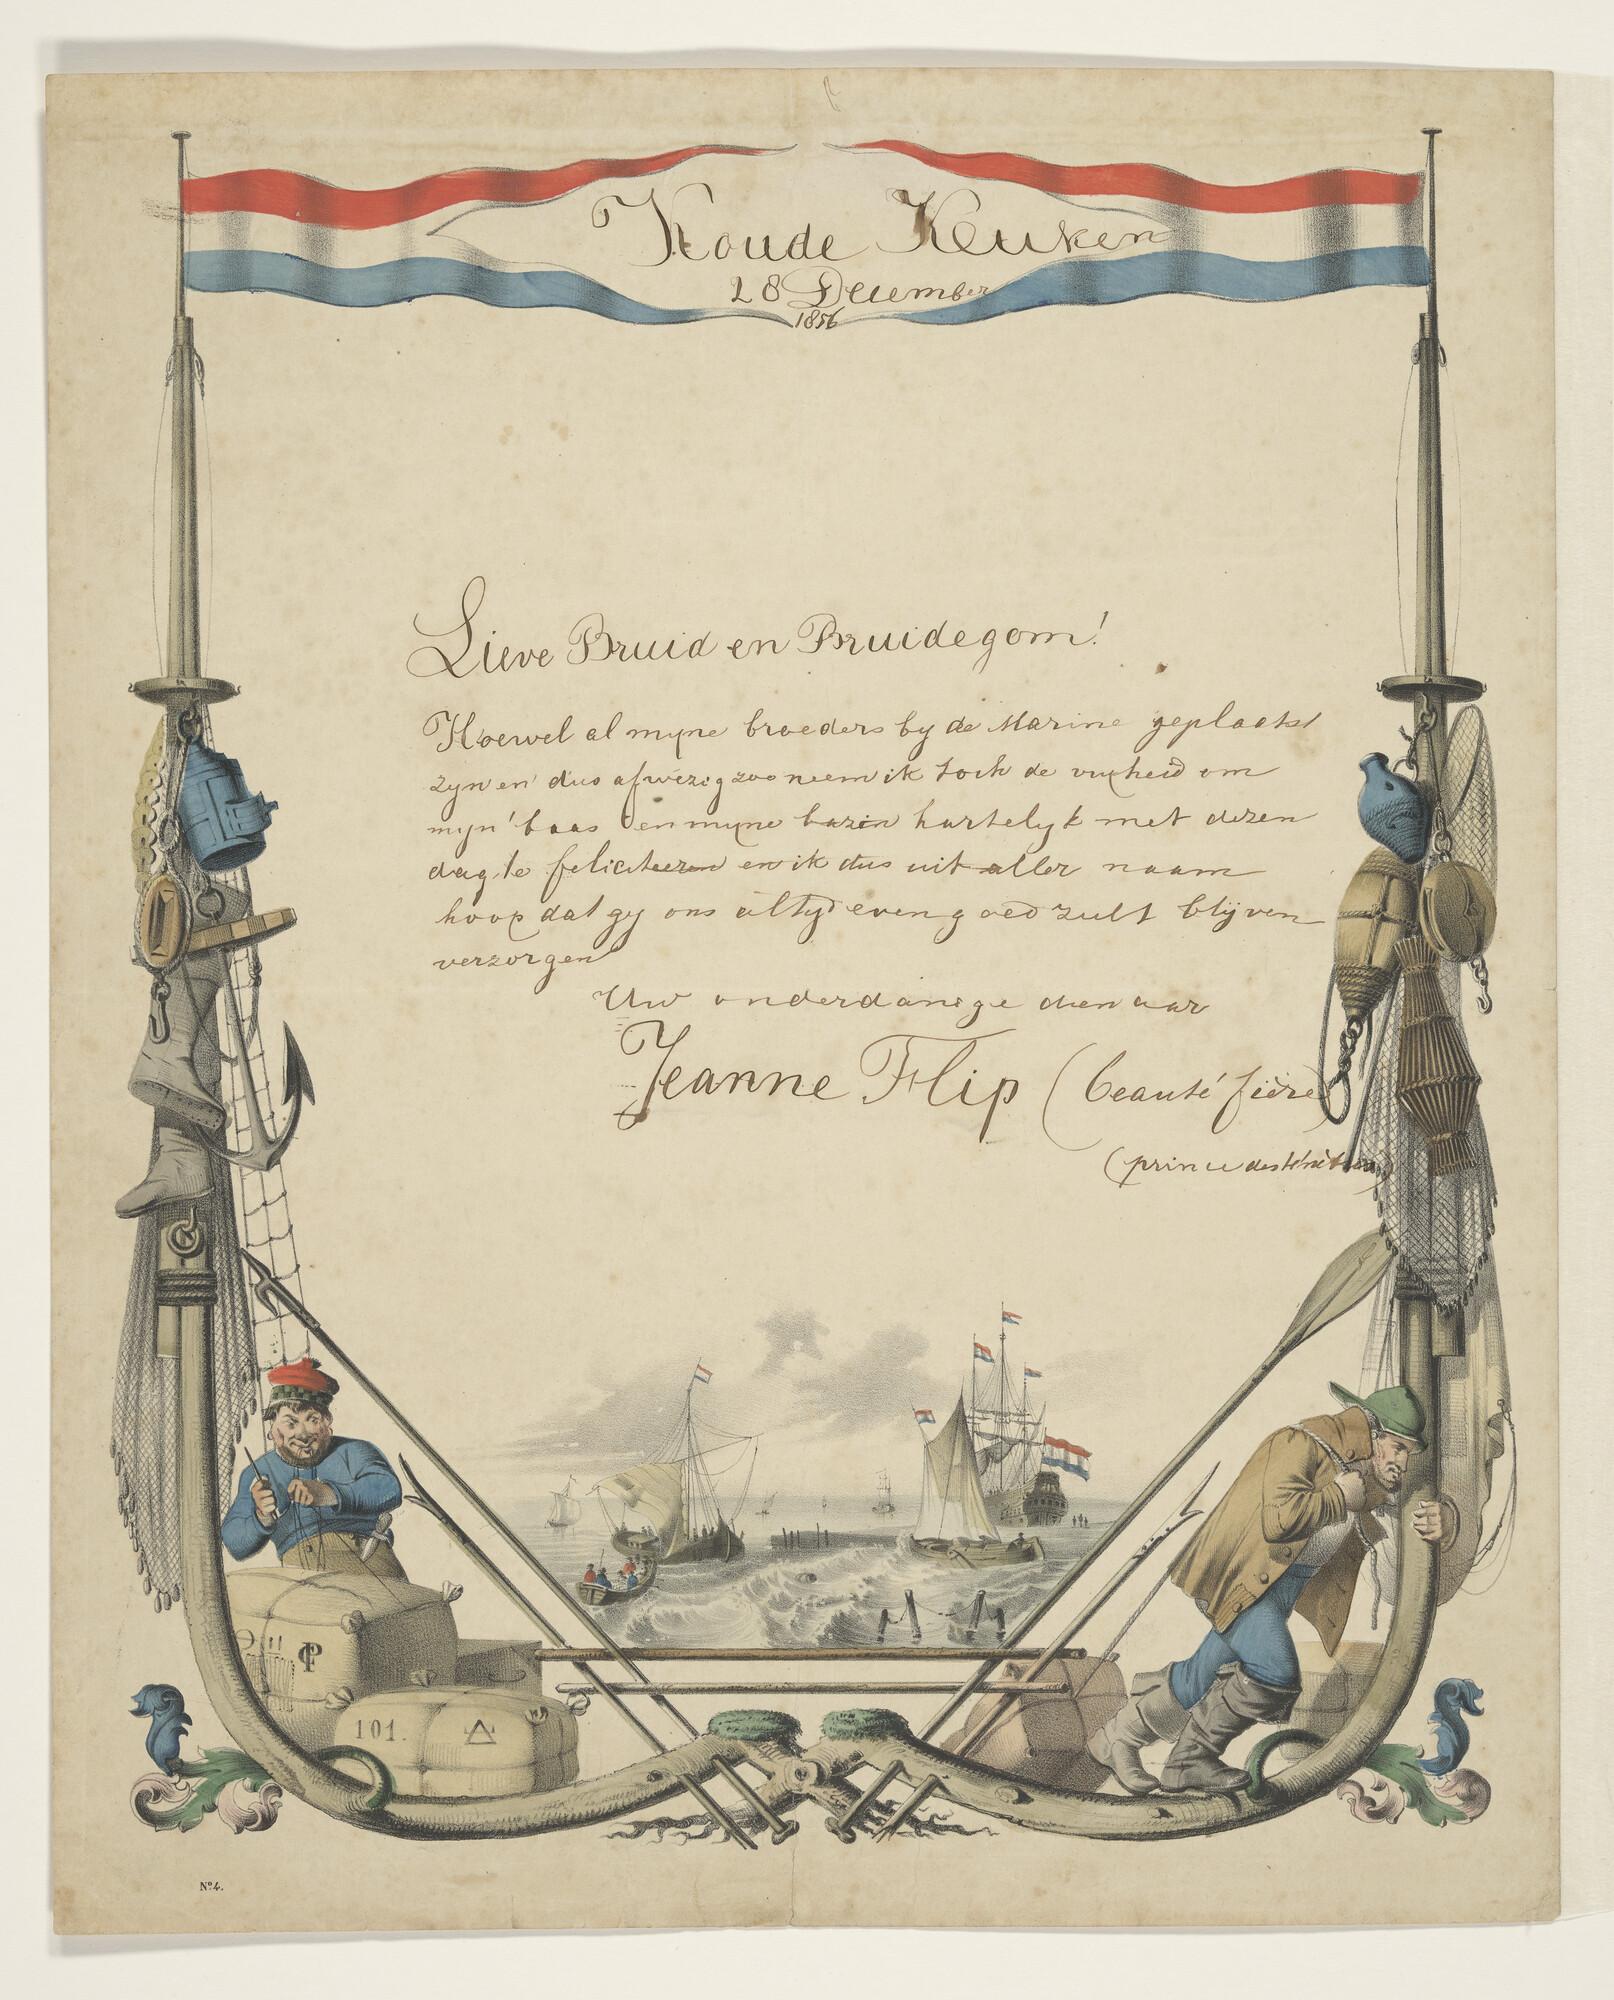 Koude Keuken
28 December
1856
Lieve Bruid en Bruidegom!
Hoewel al myne broeders by de Marine geplaatst
zyn en dus afwezig zoo neem ik toch de vryheid om
myn baas en myne bazin hartelyk met dezen
dag te feliciteeren en ik dus uit aller naam
hoop dat gy ons altyd even goed zult blijven
verzorgen
Uw onderdanige dienaar
Jeanne Flip (beauté fière)
(prince des
CP
101.
Nº4.